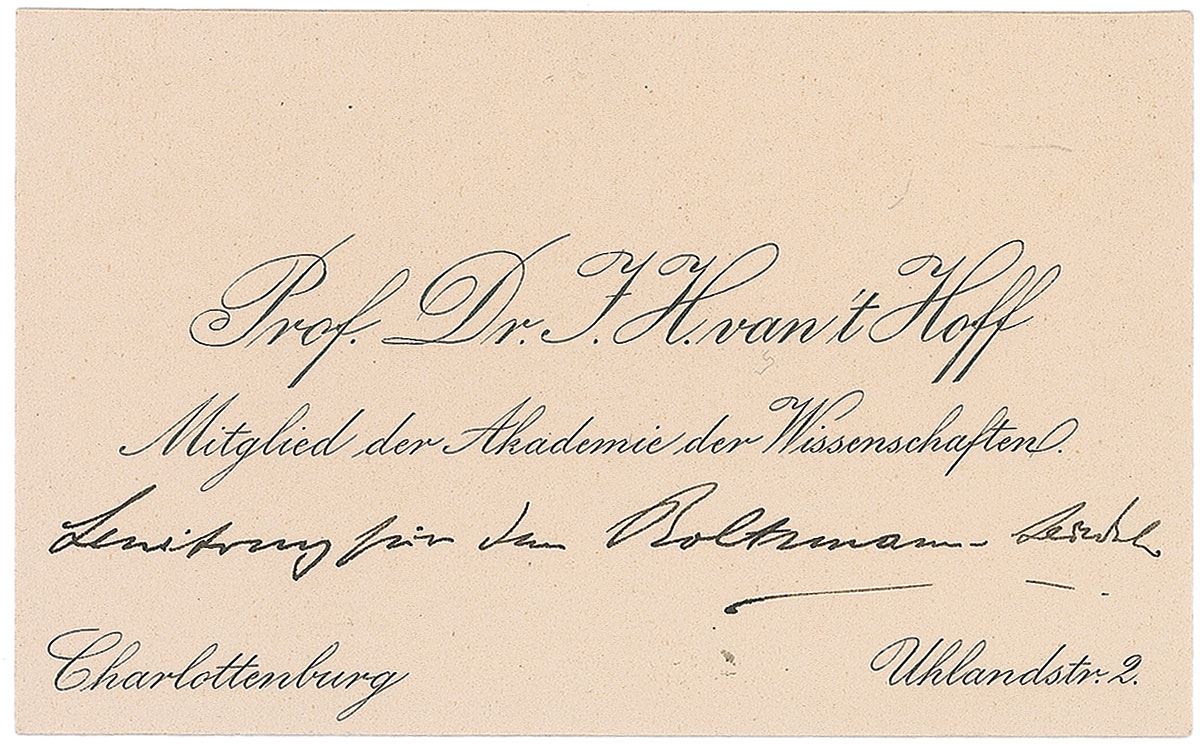 Prof. Dr. J. H. van 't Hoff
Mitglied der Akademie der Wissenschaften.
für den Boltzmann-
Charlottenburg
Uhlandstr. 2.